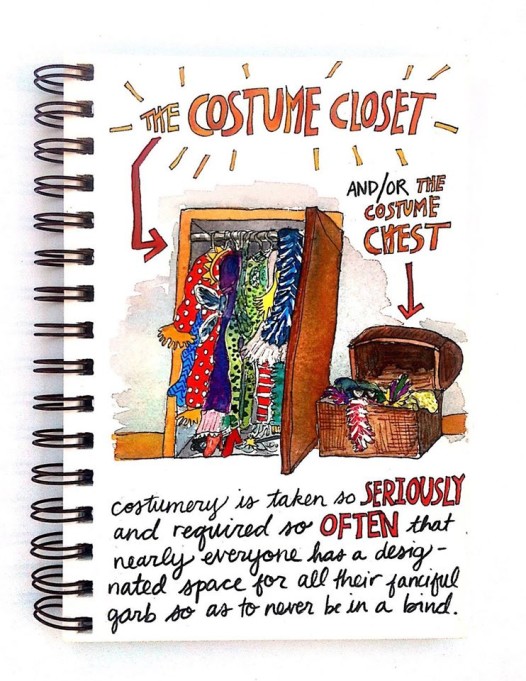 THE COSTUME CLOSET
AND/OR THE
COSTUME
CHEST
costumery is taken so SERIOUSLY
and required so OFTEN that
nearly everyone has a desig-
nated space for all their fanciful
garb so as to never be in a bind.